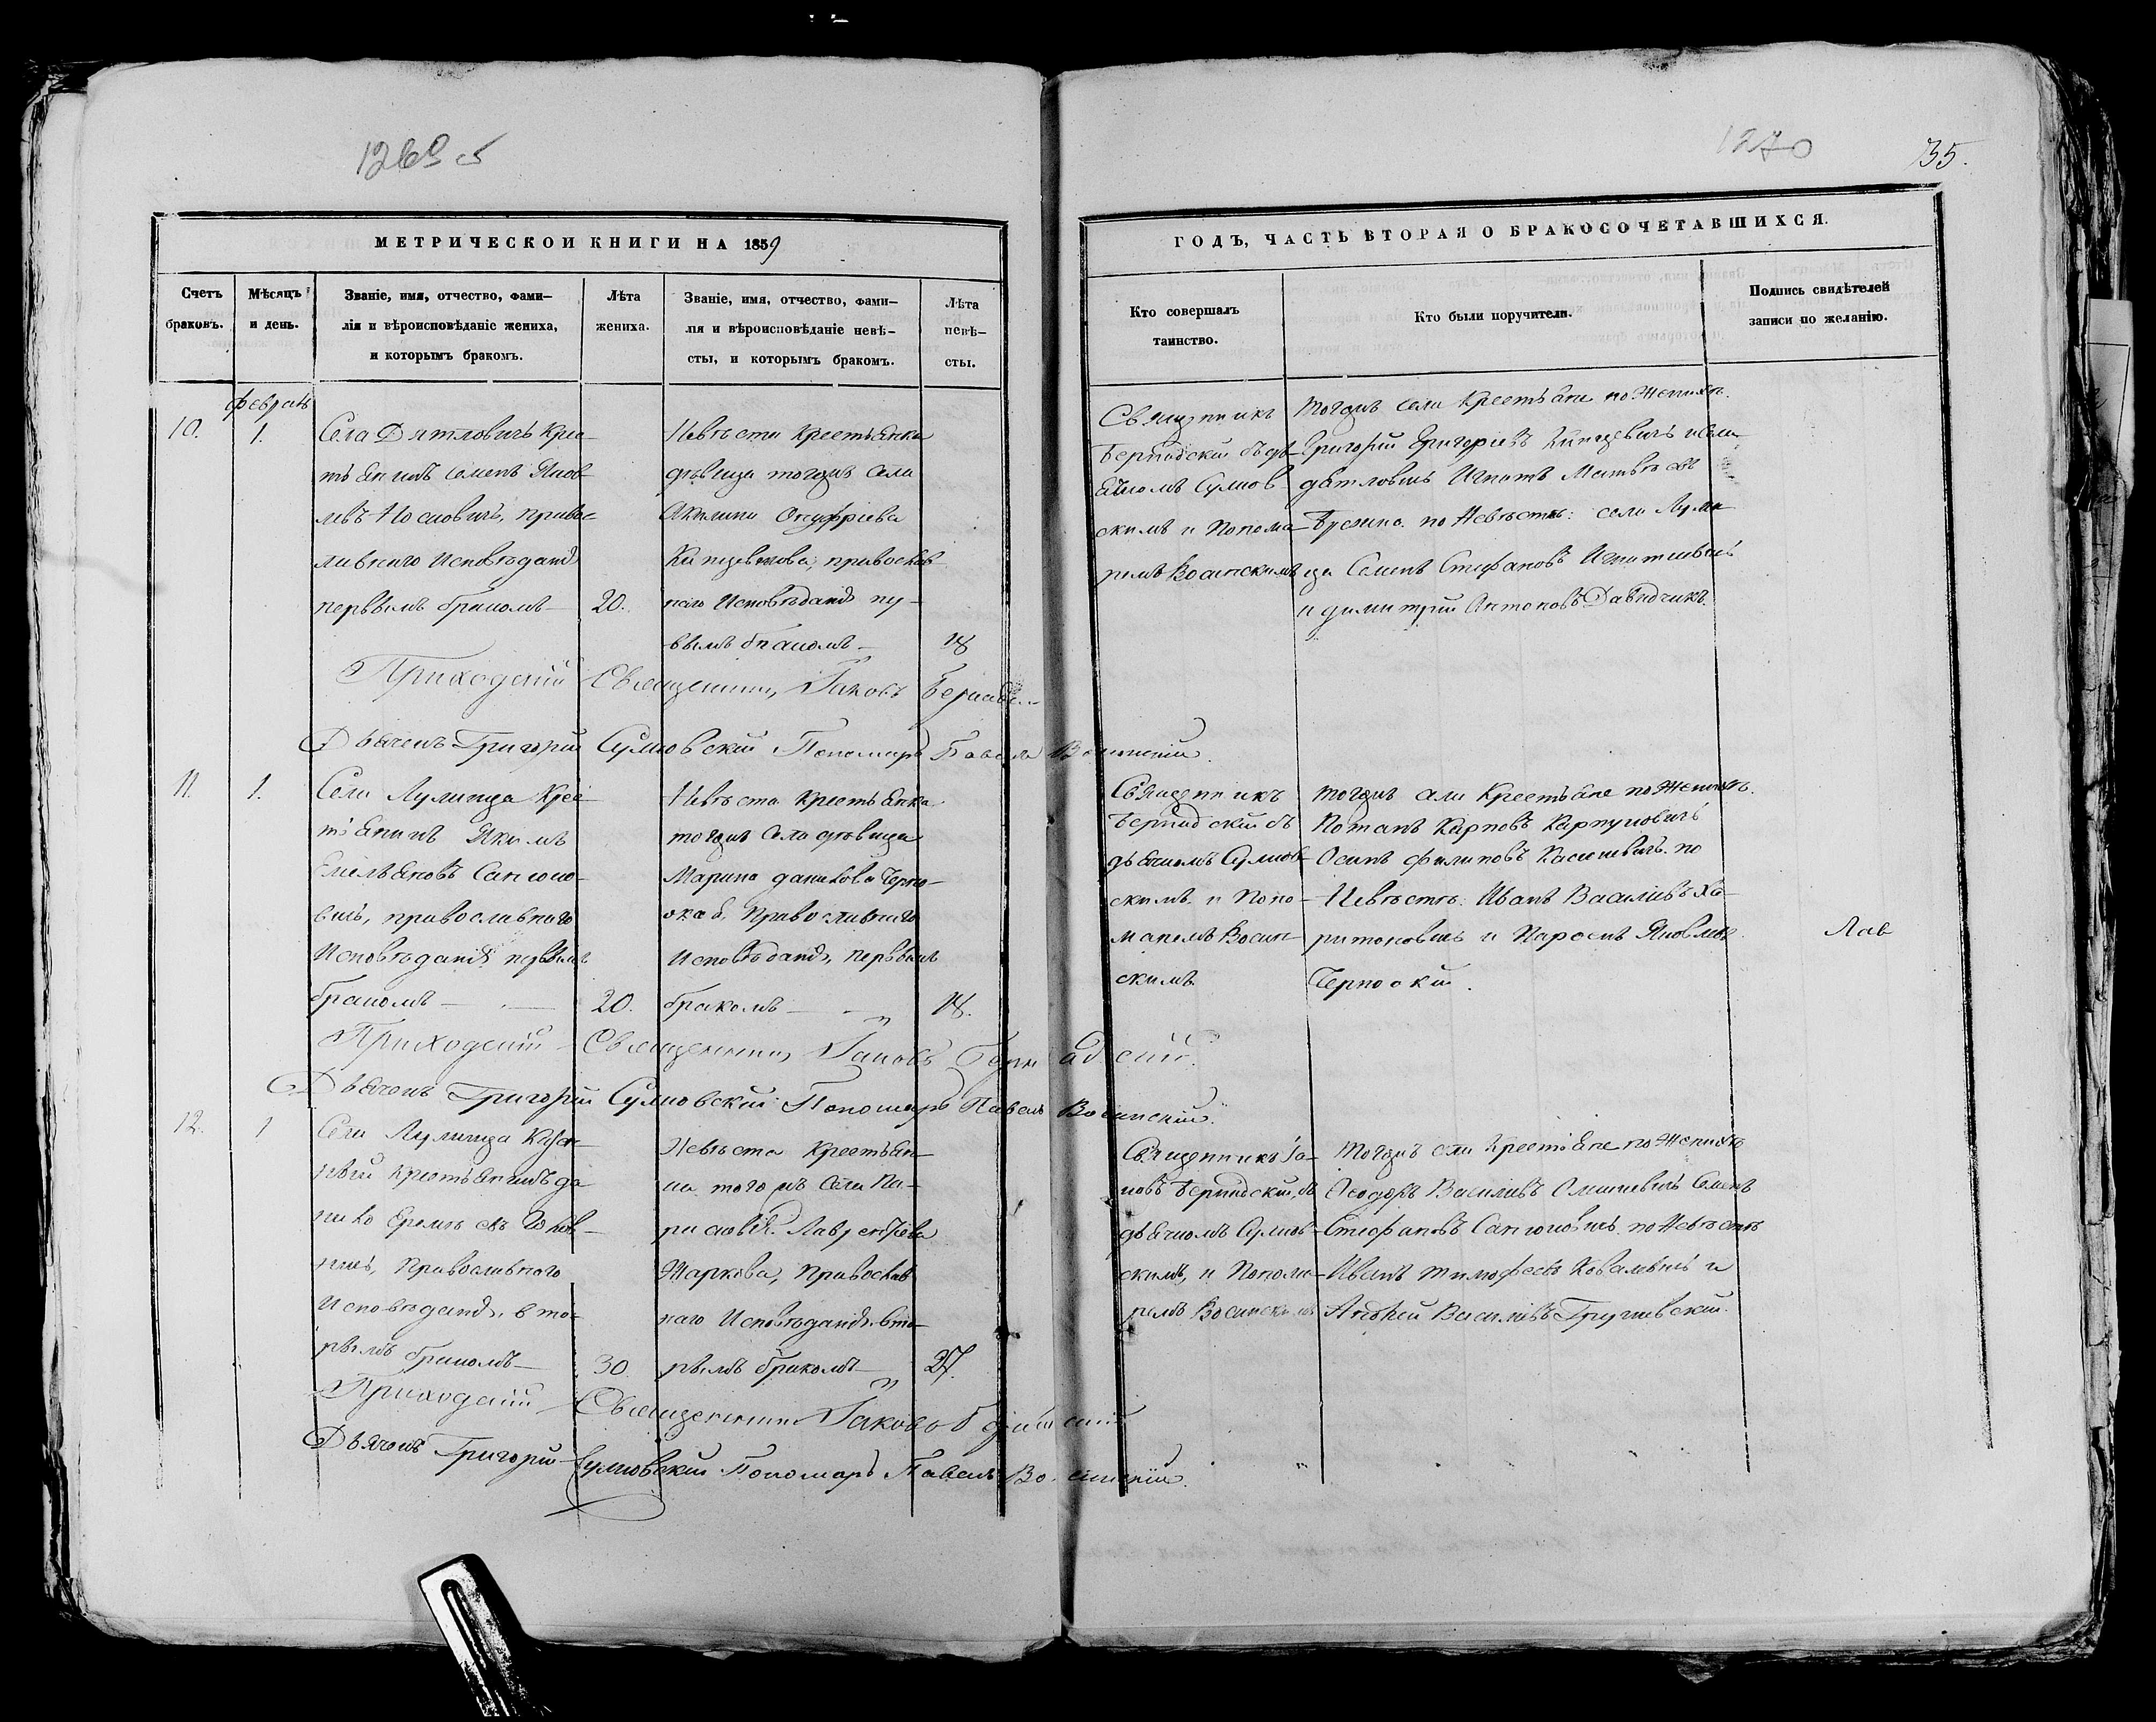 1269 об
1270
35.
МЕТРИЧЕСКОЙ КНИГИ НА 1859
ГОДЪ, ЧАСТЬ ВТОРАЯ О БРАКОСОЧЕТАВШИХСЯ.
Счетъ
браковъ.
Мѣсяцъ
и день.
Званіе, имя, отчество, фами-
лія и вѣроисповѣданіе жениха,
и которымъ бракомъ.
Лѣта
жениха.
Званіе, имя, отчество, фами-
лія и вѣроисповѣданіе невѣ-
сты, и которымъ бракомъ.
Лѣта
невѣ-
сты.
Кто совершалъ
таинство.
Кто были поручители.
Подпись свидѣтелей
записи по желанію.
февраль
10.
1.
Села Дятловичъ Кре-
стьянинъ Семенъ Яков-
левъ правос-
лавнаго Исповѣданія
первымъ бракомъ
20.
Невѣста Крестьянка
дѣвица тогожъ села
Акилина Онуфріева
православ-
наго Исповѣданія пер-
вымъ бракомъ
18
Священникъ
Бернадскій съ дь-
ячкомъ Сулков-
скимъ и Понома-
ремъ Восинскимъ
тогожъ села Крестьяне по Женихѣ.
Григорій Григорьевъ и села
Дятловичъ Игнатъ Матвѣевъ
по Невѣстѣ: села Лули-
нца Семенъ Стефановъ Игнатовичъ
и Димитрій Антоновъ Давидчикъ.
Приходскій Священникъ Іаковъ Бернадскій
Дьячокъ Григорій Сулковскій Пономарь Павелъ Восинскій.
11.
1.
Села Лулинца Крес-
тьянинъ Якимъ
Емельяновъ Санюко-
вичъ, православнаго
Исповѣданія первымъ
бракомъ
20.
Невѣста Крестьянка
тогожъ Села дѣвица
Марина Данилова Черно-
окая, Православнаго
Исповѣданія, первымъ
бракомъ
18.
Священникъ
Бернадскій съ
дьячкомъ Сулков-
скимъ и Поно-
маремъ Восин-
скимъ
тогожъ села Крестьяне по Женихѣ.
Потапъ Карповъ Карпуковичъ
Осипъ Филиповъ по
Невѣстѣ: Иванъ Васильевъ Ха-
ритоновичъ и Парфенъ Яковлевъ
Черноокій.
Лав
Приходскій Священникъ Іаковъ Бернадскій.
Дьячокъ Григорій Сулковскій Пономарь Павелъ Восинскій.
12.
1
Села Лулинца Казен-
ный Крестьянинъ Да-
нило
Православнаго
Исповѣданія, вто-
рымъ бракомъ
30
Невѣста Крестьян-
ка тогожъ Села Па-
расковія Лаврентьева
Жаркова, Православ-
наго Исповѣданія вто-
рымъ бракомъ
27.
Священникъ Іа-
ковъ Бернадскій, съ
дьячкомъ Сулков-
скимъ, и Понома-
ремъ Восинскимъ
Тогожъ села Крестьяне по Женихѣ
Феодоръ Васильевъ Семенъ
Стефановъ Санюковичъ. по Невѣстѣ
Иванъ Тимофеевъ Ковалевичъ и
Андрей Васильевъ Грушевскій.
Приходскій Священникъ Іаковъ Бернадскій
Дьячокъ Григорій Сулковскій Пономарь Павелъ Восинскій.